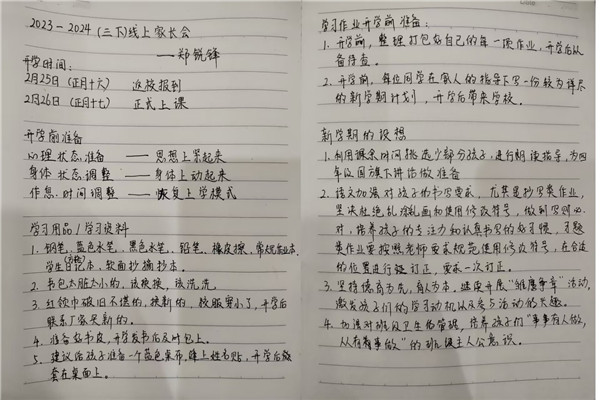 2023-2024(三下)线上家长会
——郑锐锋
开学时间:
2月25日(正月十六) 返校报到
2月26日(正月十七) 正式上课
开学前准备
心理状态准备 —— 思想上紧起来
身体状态调整 —— 身体上动起来
作息时间调整 —— 恢复上学模式
学习用品/学习资料
1. 钢笔,蓝色水笔,黑色水笔,铅笔,橡皮擦,常规作业本,
学生日记本,软面抄摘抄本。
2. 书包太脏太小的,该换换,该洗洗
3. 红领巾破旧不堪的,换新的,校服穿小了,开学后
联系厂家买新的。
4. 准备好书皮,开学发书后及时包上。
5. 建议给孩子准备一个蓝色桌布,缝上姓名贴,开学后能
套在桌面上。
学习作业开学前准备:
1. 开学前,整理打包好自己的每一项作业,开学后以
备待查。
2. 开学前,每位同学在家人的指导下写一份较为详尽
的新学期计划,开学后带来学校。
新学期的设想
1. 利用课余时间挑选少部分孩子,进行朗读指导,为四
年级国旗下讲话做准备
2. 语文加强对孩子的书写要求,尤其是抄写类作业,
坚决杜绝乱涂乱画和使用修改符号,做到写则必
对,培养孩子的专注力和认真书写的好习惯,习题
类作业要按照老师要求规范使用修改符号,在合适
的位置进行订正,要求一次订正。
3. 坚持德育为先,育人为本,继续开展“雏鹰争章”活动,
激发孩子们的学习动机以及参与活动的兴趣。
4. 加强对班级卫生的管理,培养孩子们“事事有人做,
人人有事做”的班级主人公意识。